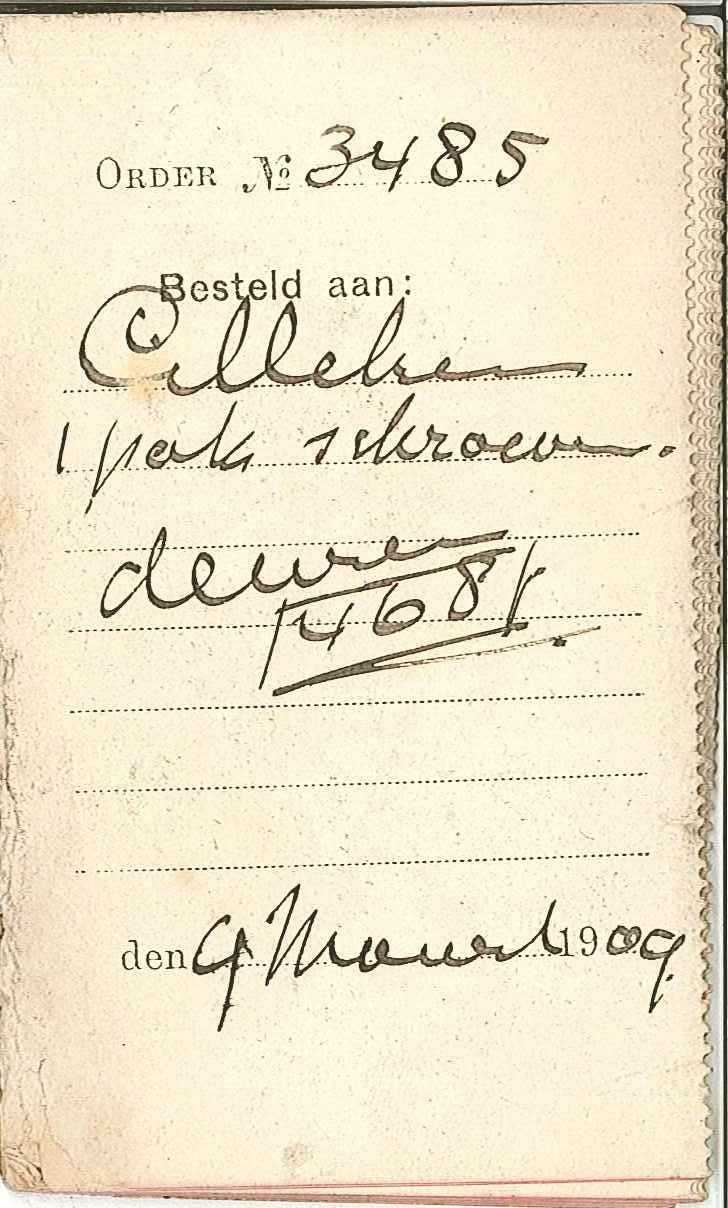 ORDER № 3485
Besteld aan:
1 pak schroeven.
1468
den 9 Maart 1909.